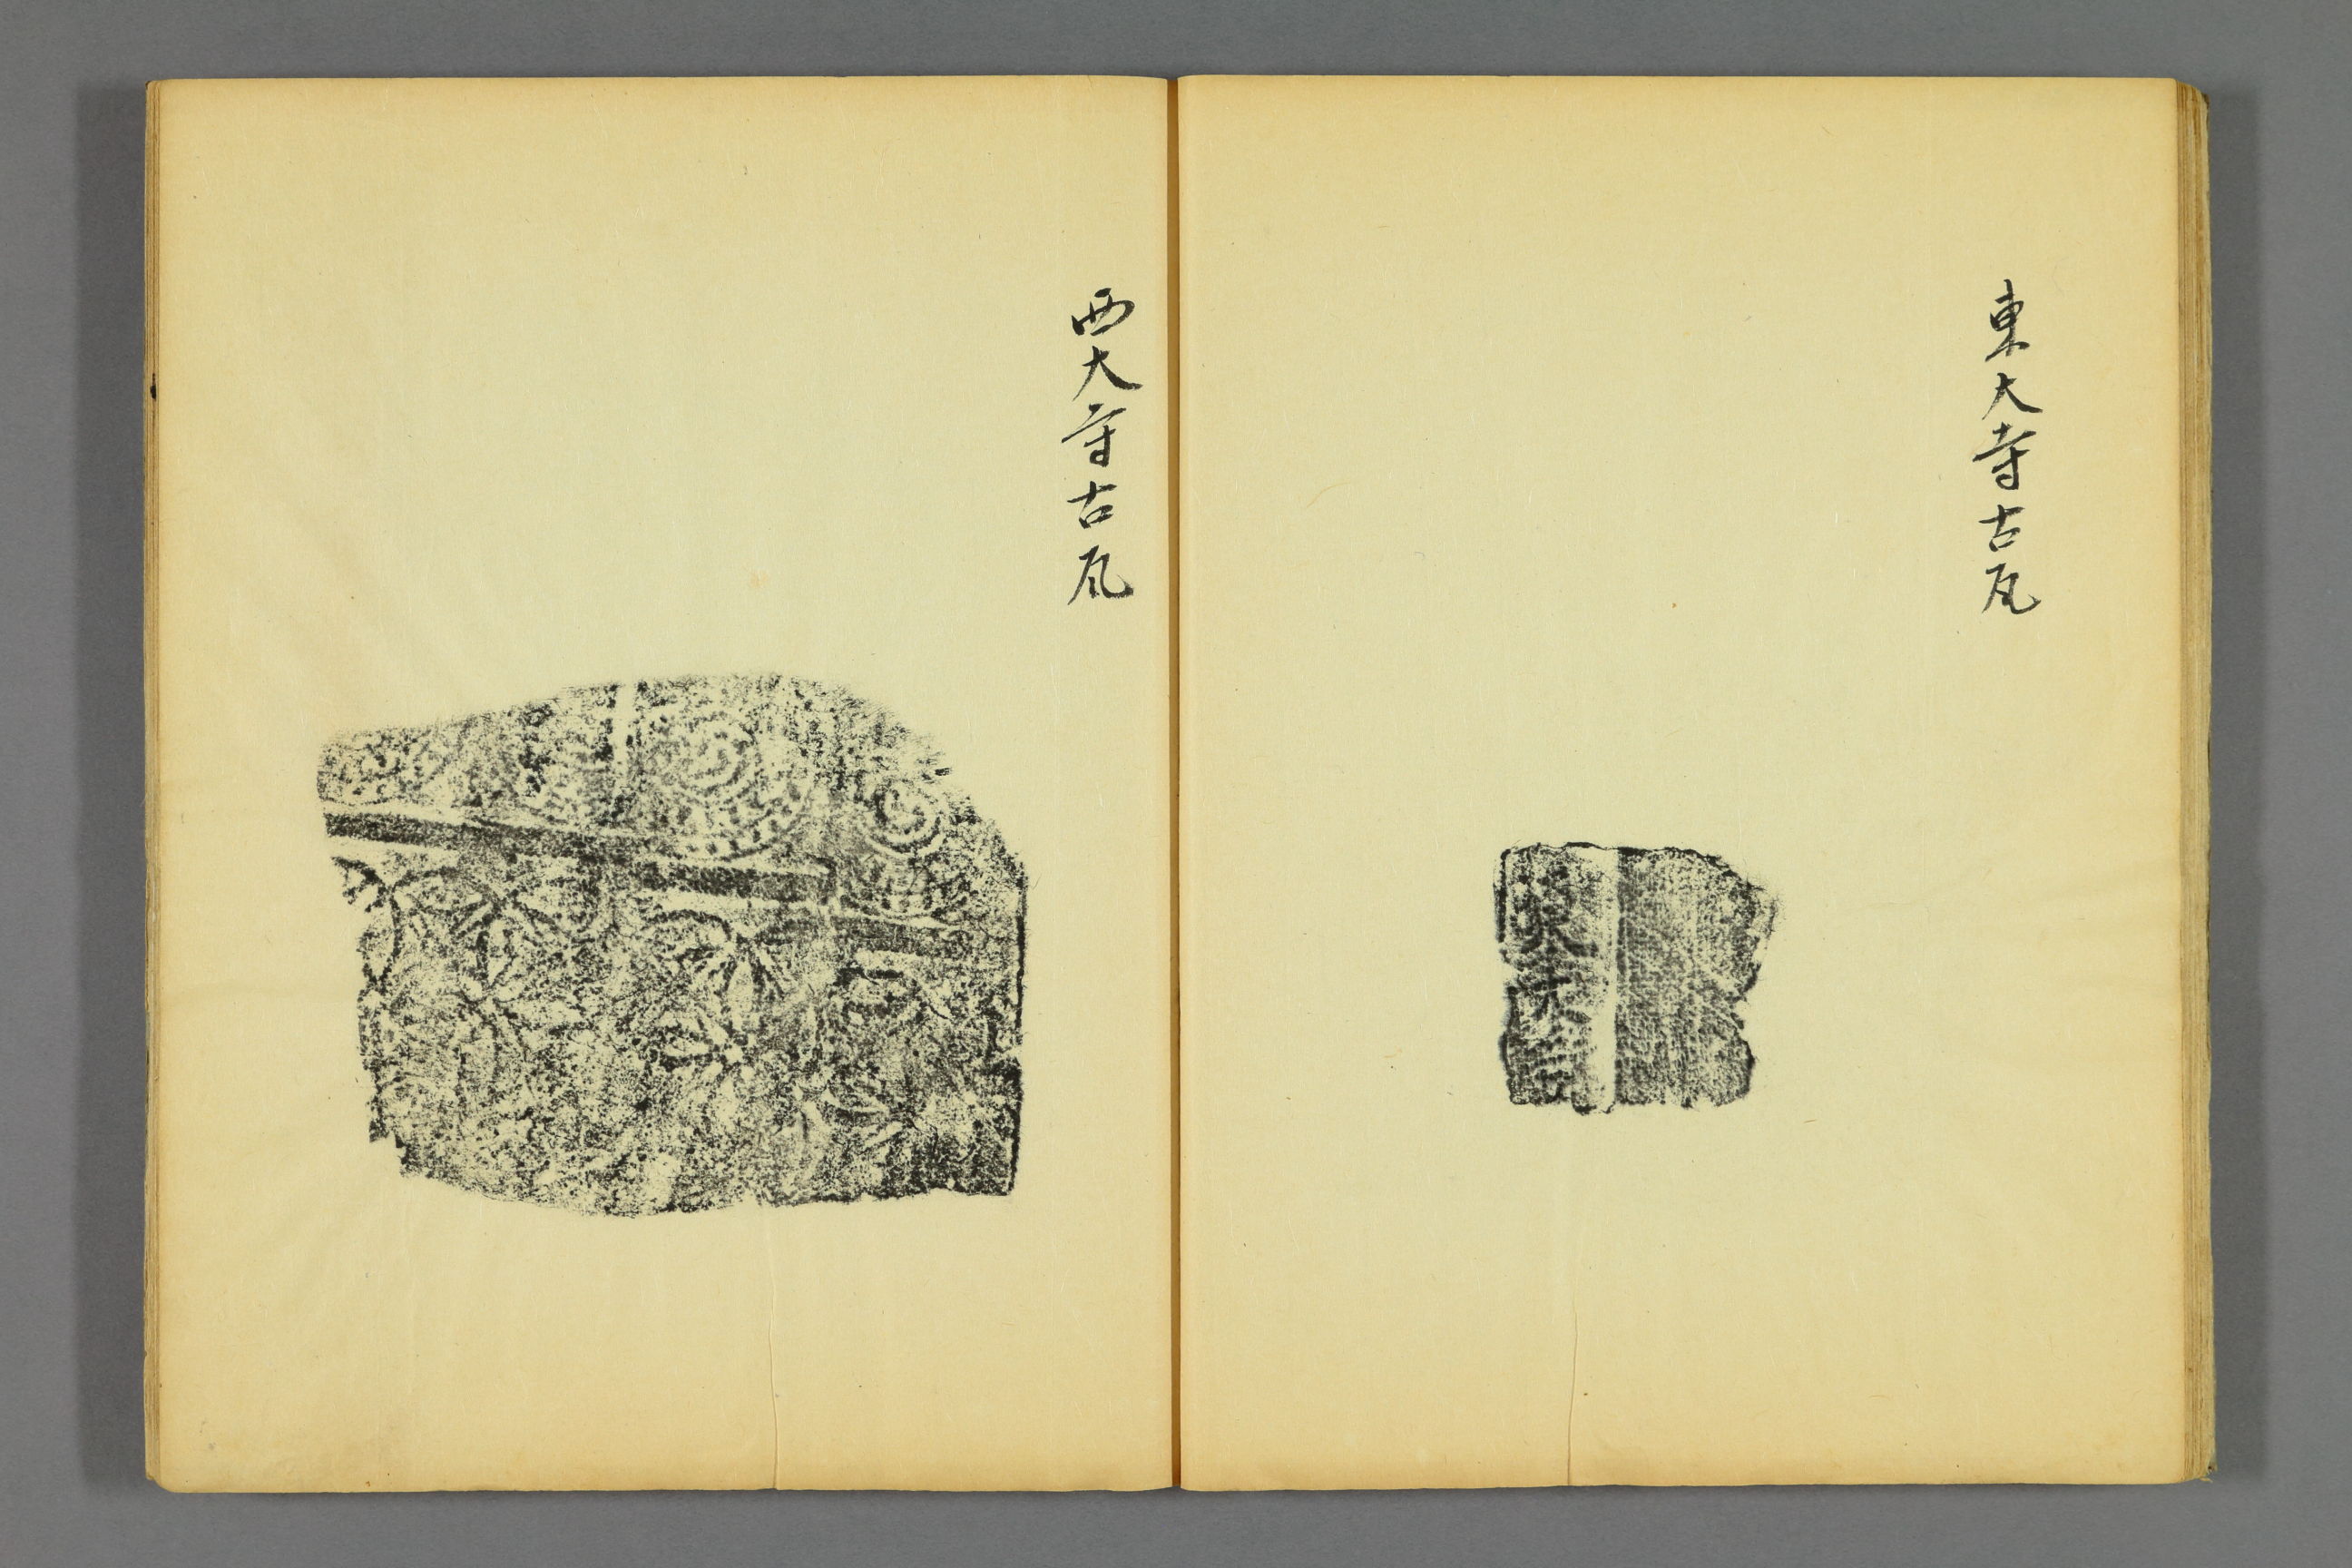 東大寺古瓦
東大寺
西大寺古瓦